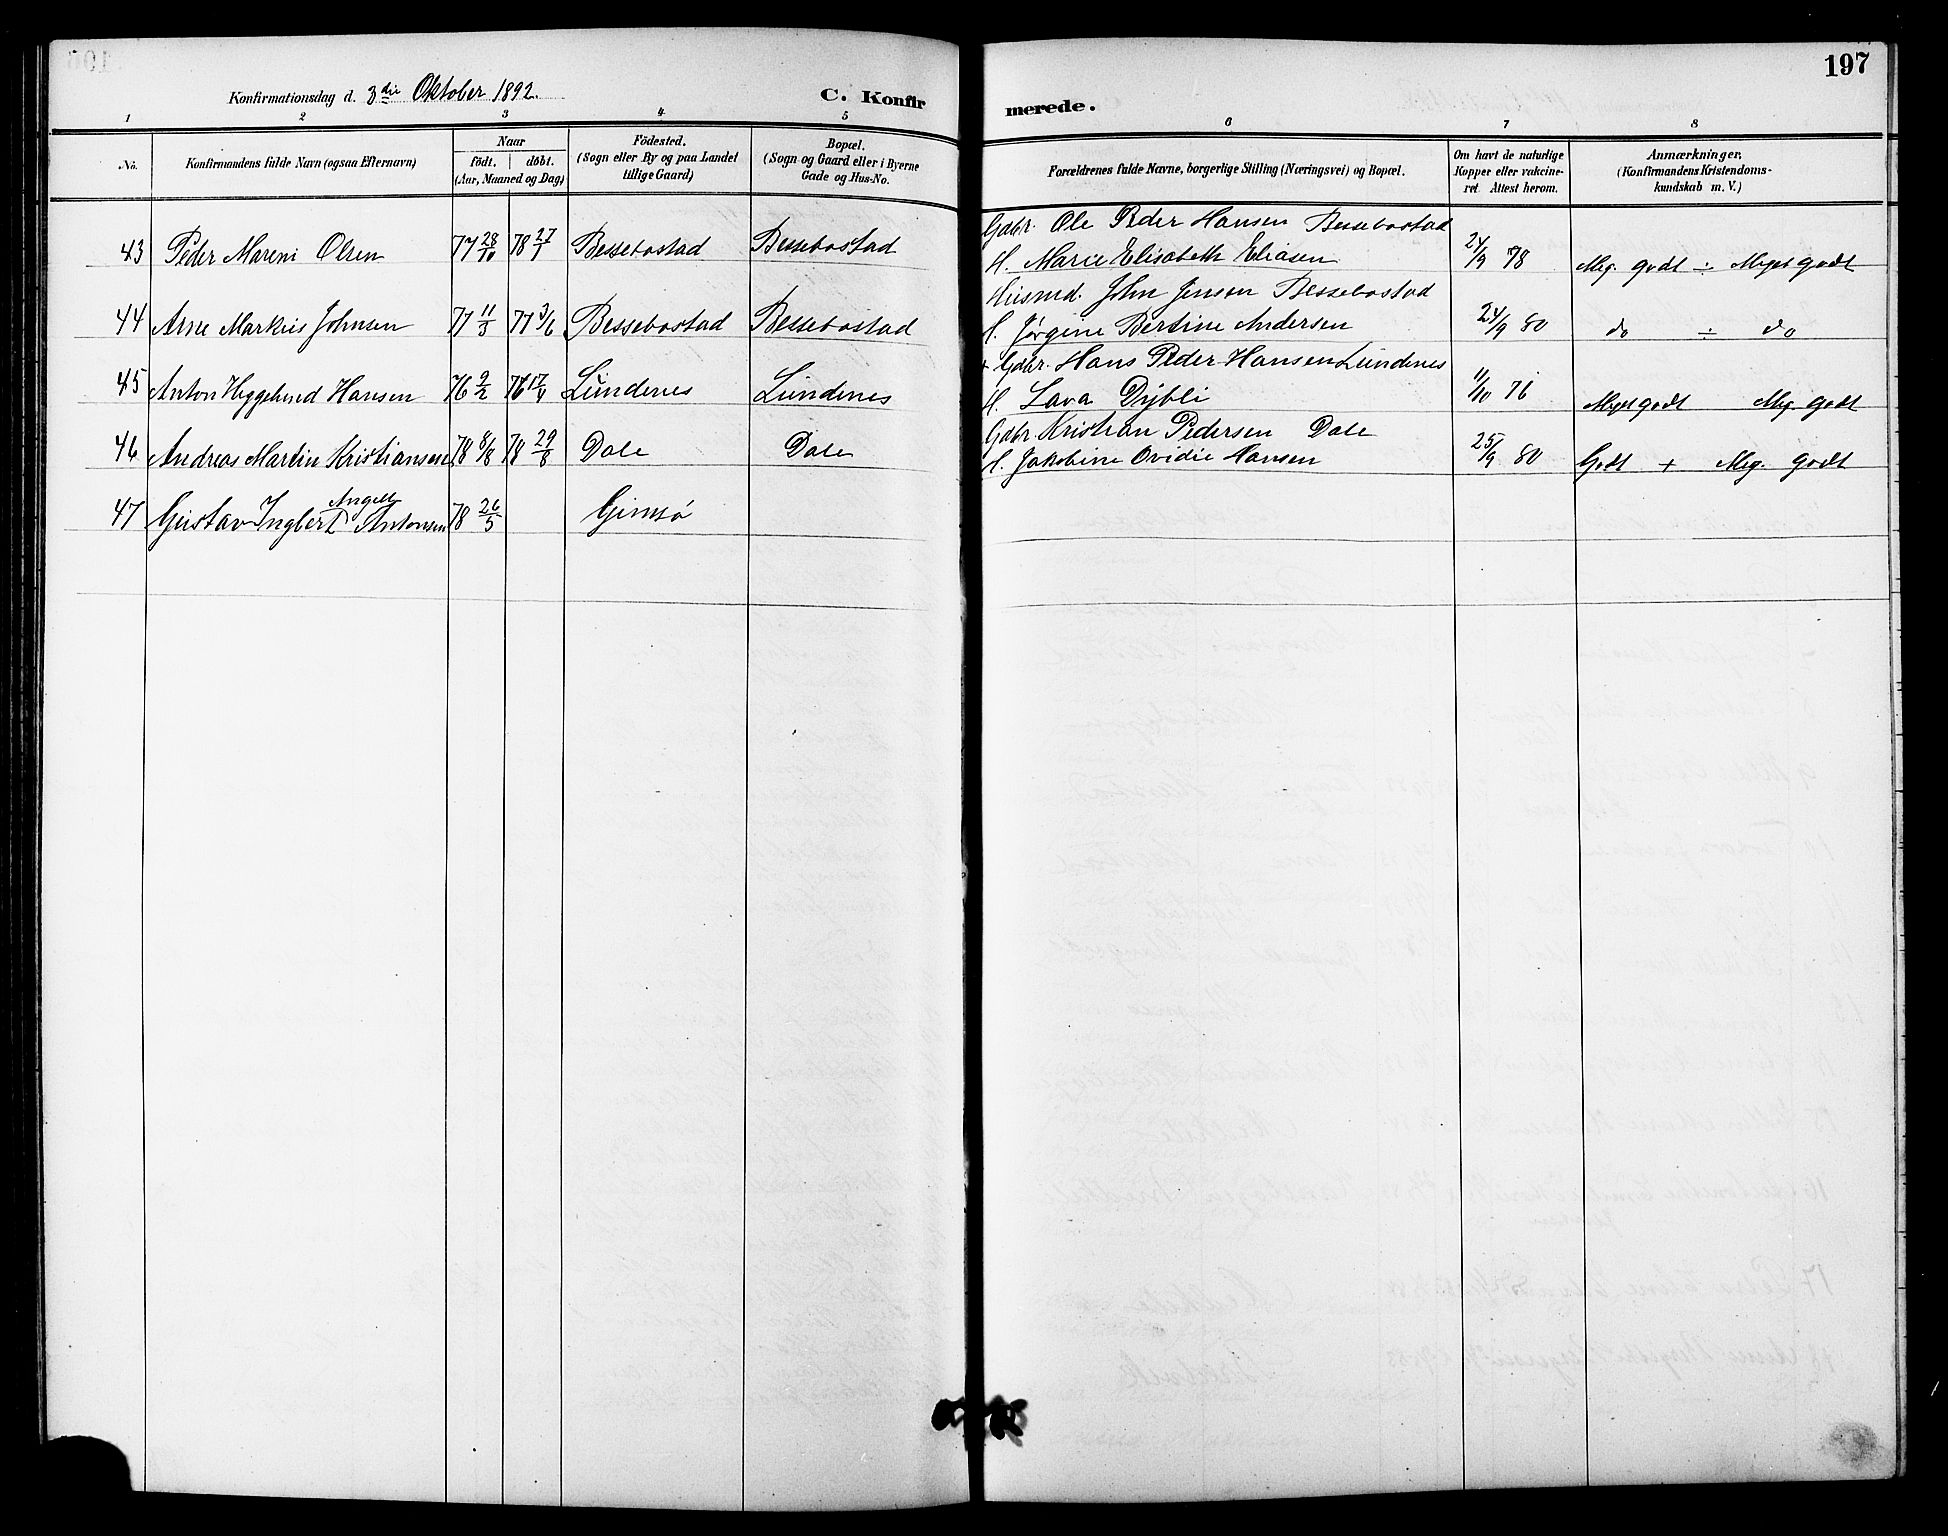 197
Konfirmationsdag d. 3die Oktober 1892.
C. Konfirmerede.
1 2 3 4 5 6 7 8
No.
Konfirmandens fulde Navn (ogsaa Efternavn)
Naar
födt. | döbt.
(Aar, Maaned og Dag)
Födested.
(Sogn eller By og paa Landet
tillige Gaard)
Bopæl.
(Sogn og Gaard eller i Byerne
Gade og Hus-No.
Forældrenes fulde Navne, borgerlige Stilling (Næringsvei) og Bopæl.
Om havt de naturlige
Kopper eller vakcine-
ret. Attest herom.
Anmærkninger,
(Konfirmandens Kristendoms-
kundskab m. V.)
43 Peder Mareni Olsen 77 28/10 78 27/1 Bessebostad Bessebostad
Gdbr. Ole Peder Hansen Bessebostad
H. Marie Elisabeth Eliasen 24/9 78 Meg. godt ÷ Meget godt
44 Arne Markus Johnsen 77 11/3 77 3/6 Bessebostad Bessebostad
Husmd. John Jensen Bessebostad
H. Jørgine Bertine Andersen 24/9 80 do ÷ do
45 Anton Heggelund Hansen 76 9/2 76 17/4 Lundenes Lundenes
+ Gdbr. Hans Peder Hansen Lundenes
H. Lava Dybli 11/10 76 Meget godt Meg. godt
46 Andreas Martin Kristiansen 78 8/8 78 29/8 Dale Dale
Gdbr Kristian Pedersen Dale
H. Jakobine Ovidie Hansen 25/9 80 Godt + Meg. godt
Angell
47 Gustav Ingbert Antonsen 78 26/5 Gimsø